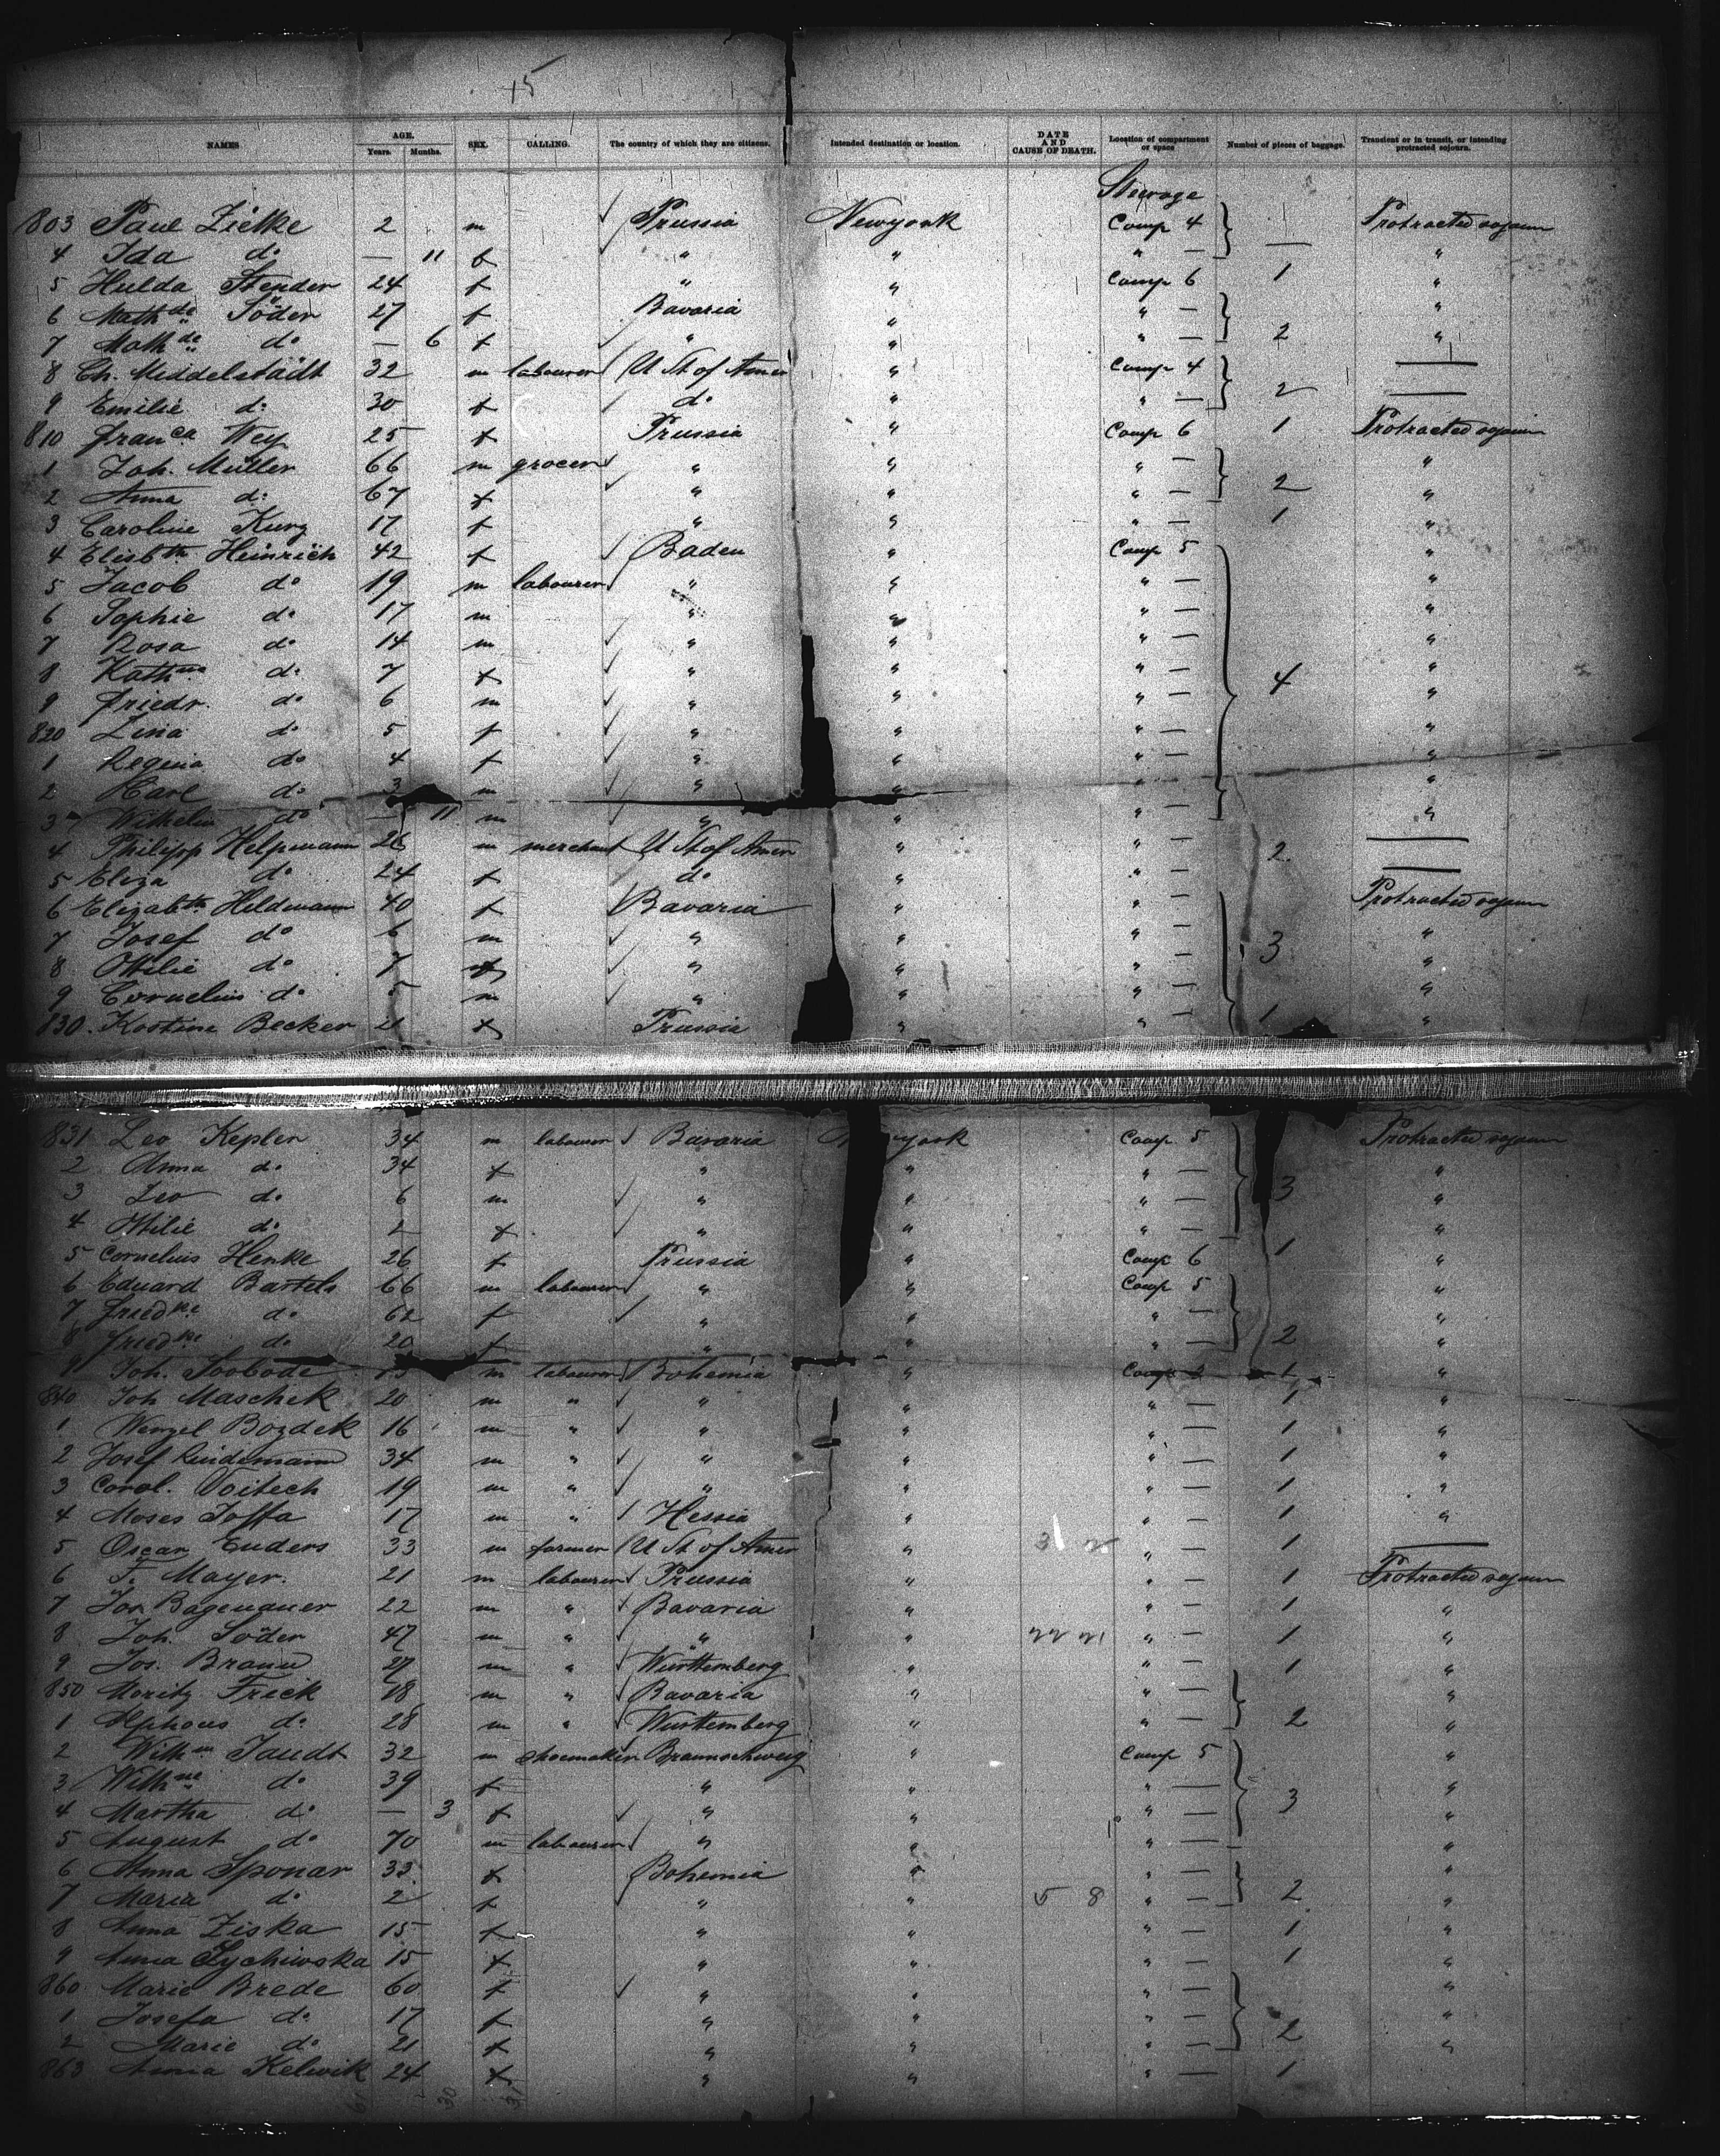 15
NAMES AGE. Years. Months. SEX. CALLING. The country of which they are citizens. Intended destination or location. DATE AND CAUSE OF DEATH. Location of compartment or space Number of pieces of baggage. Transient or in transit, or intending protracted sojourn.
Steerage
803 Paul Zielke 2 m Prussia Newyork Comp 4 Protracted sojourn
4 Ida do — 11 f " " " — — "
5 Hulda Stender 24 f " " Comp 6 1 "
6 Mathde Söder 27 f Bavaria " " — "
7 Mathde do — 6 f " " " — 2 "
8 Ch. Middelstädt 32 m labourer U St of Amer " Comp 4 —
9 Emilie do 30 f do " " — 2 —
810 Franca Wey 25 f Prussia " Comp 6 1 Protracted sojourn
1 Joh. Müller 66 m grocer " " " — "
2 Anna do 67 f " " " — 2 "
3 Caroline Kurz 17 f " " " — 1 "
4 Elisbth Heinrich 42 f Baden " Comp 5 "
5 Jacob do 19 m labourer " " " — "
6 Sophie do 17 m " " " — "
7 Rosa do 14 m " " " — "
8 Kathna do 7 f " " " — 4 "
9 Friedr. do 6 m " " " — "
820 Lina do 5 f " " " — "
1 Regina do 4 f " " " — "
2 Karl do 3 m " " " — "
3 Wilhelm do — 11 m " " " — "
4 Philipp Helpmann 26 m merchant U St of Amer " " — 2 —
5 Eliza do 24 f do " " — —
6 Elizabth Heldmann 40 f Bavaria " " — Protracted sojourn
7 Josef do 6 m " " " — 3 "
8 Ottilie do 7 f " " " — "
9 Cornelius do 5 m " " " — "
830. Kostine Becker 21 f Prussia " " — 1 "
831 Leo Kepler 34 m labourer Bavaria Newyork Comp 5 Protracted sojourn
2 Anna do 34 f " " " — 3 "
3 Leo do 6 m " " " — "
4 Ottilie do 2 f " " " — "
5 Cornelius Henke 26 f Prussia " Comp 6 1 "
6 Eduard Bartels 66 m labourer " " Comp 5 "
7 Friedke do 62 f " " " — "
8 Friedke do 20 f " " " — 2 "
9 Joh. Soobode m labourer Bohemia " Comp 1 "
840 Joh Maschek 20 m " " " " — 1 "
1 Wenzel Bozdek 16 m " " " " — 1 "
2 Josef Lindemann 34 m " " " " — 1 "
3 Corol. Voitech 19 m " " " " — 1 "
4 Moses Joffa 17 m " Hessia " " — 1 "
5 Oscar Enders 33 m farmer U St of Amer " " — 1 —
6 F. Mayer. 21 m labourer Prussia " " — 1 Protracted sojourn
7 Jos Bagenauer 22 m " Bavaria " " — 1 "
8 Joh. Söder 47 m " " " " — 1 "
9 Jos. Braun 27 m " Württemberg " " — 1 "
850 Moritz Frick 18 m " Bavaria " " — "
1 Alphons do 28 m " Württemberg " " — 2 "
2 Wilhm Tandt 32 m shoemaker Braunschweig " Comp 5 "
3 Wilhne do 39 f " " " — "
4 Martha do — 3 f " " " — 3 "
5 August do 70 m labourer " " " — "
6 Anna Sponar 33 f Bohemia " " — "
7 Maria do 2 f " " 5 8 " — 2 "
8 Anna Ziska 15 f " " " — 1 "
9 Anna Lychiwska 15 f " " " — 1 "
860 Marie Brede 60 f " " " — "
1 Josefa do 17 f " " " — "
2 Marie do 21 f " " " — 2 "
863 Anna Kelwik 24 f " " " — 1